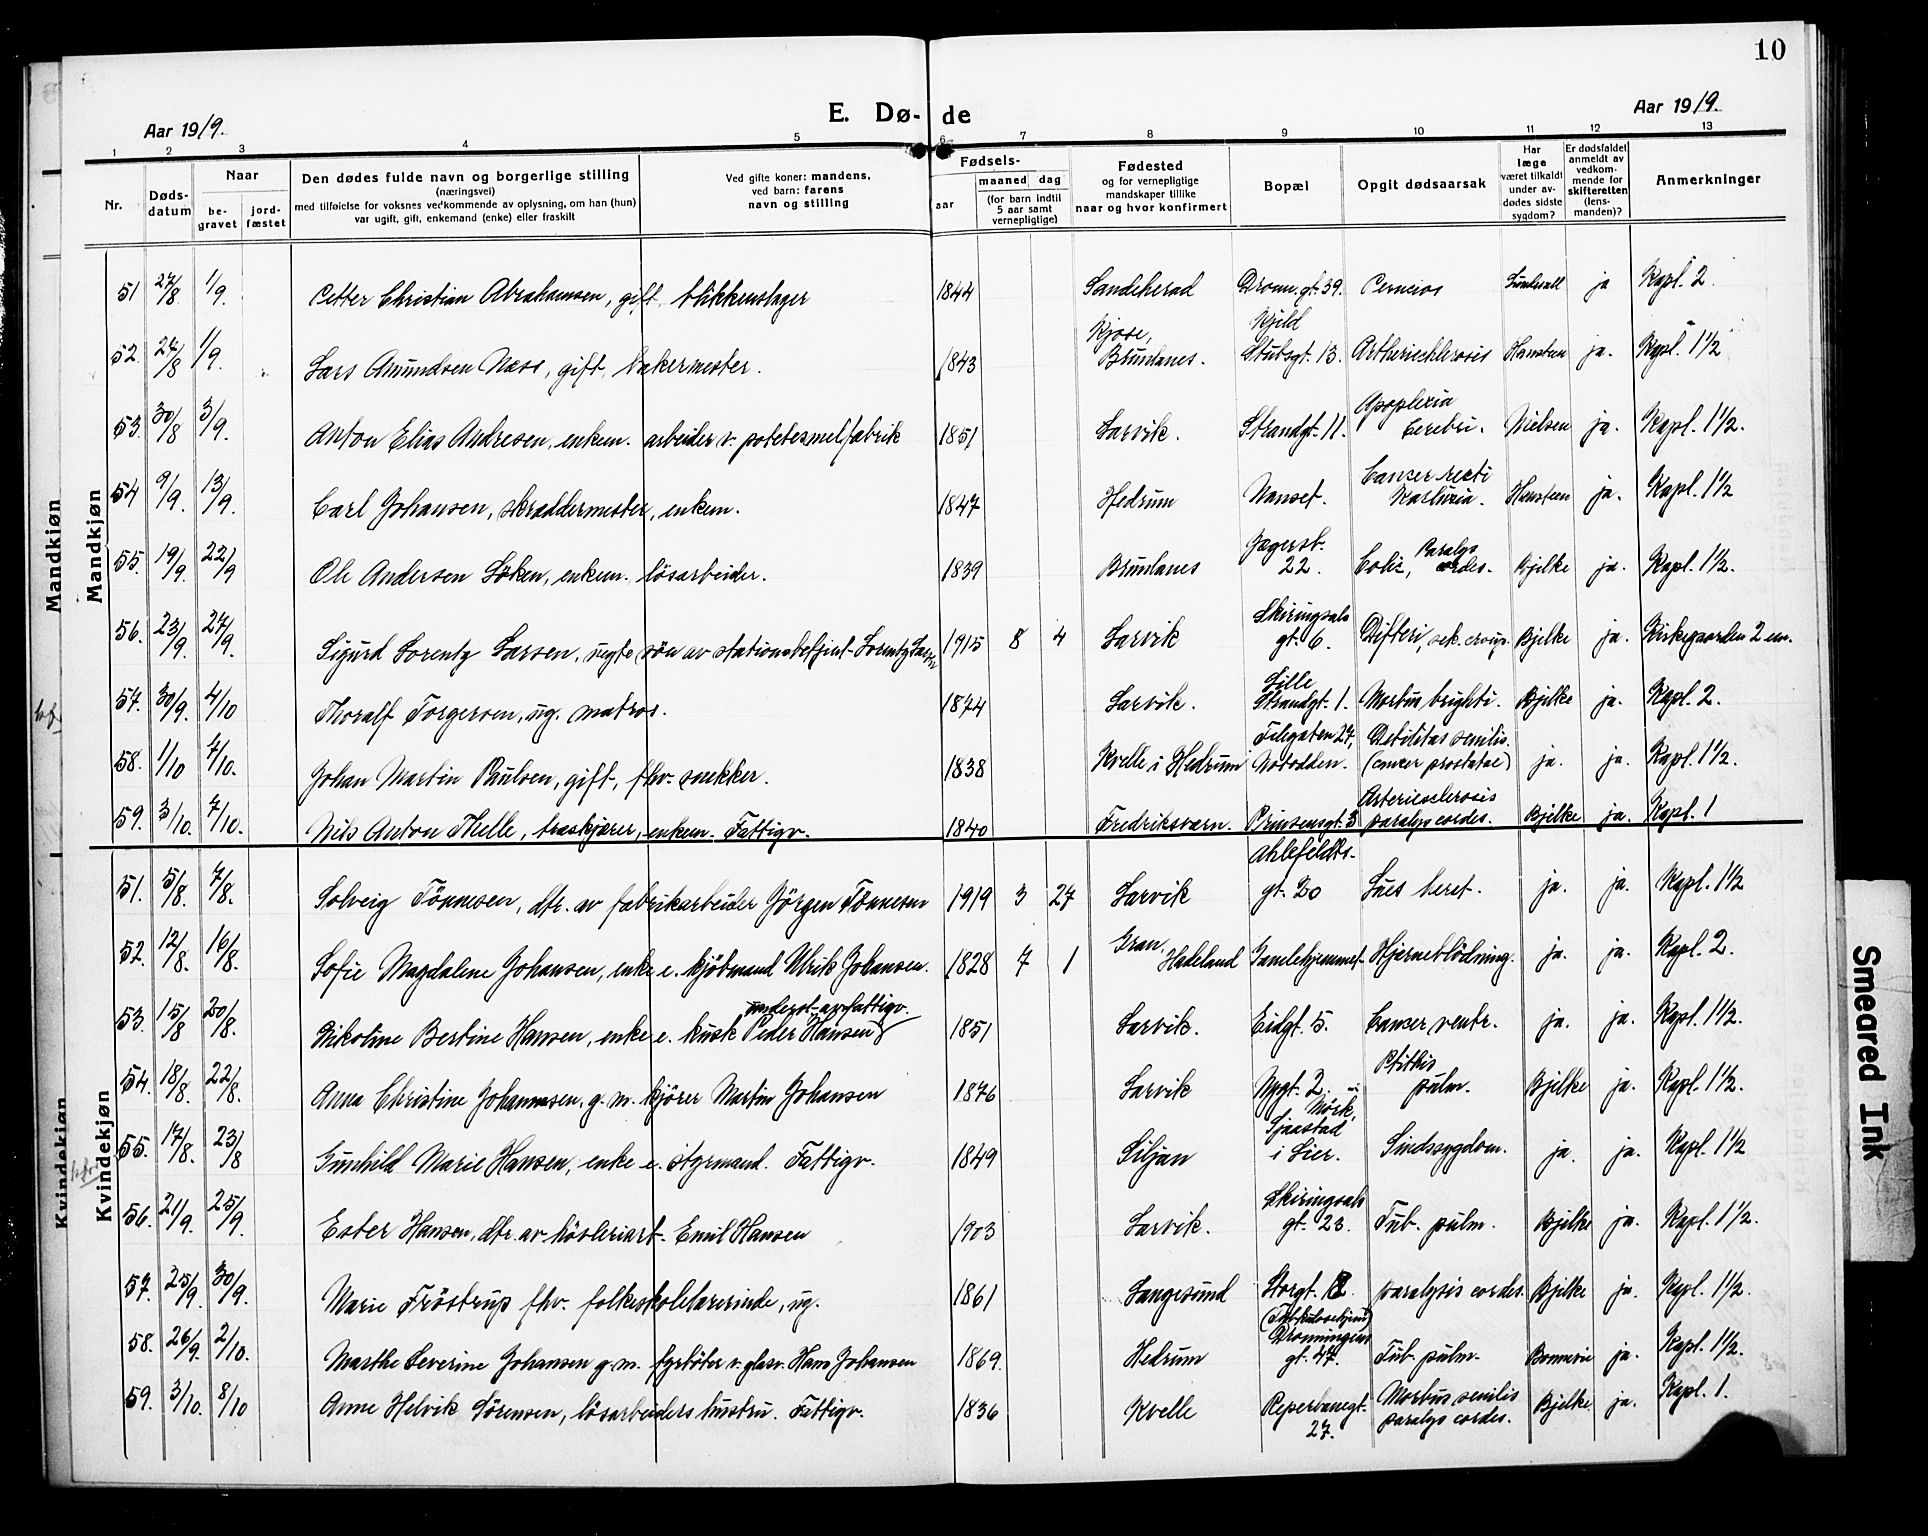 10
E. Dø- de
Aar 1919.
Aar 1919.
1 2 3 4 5 6 7 8 9 10 11 12 13
Nr.
Døds-datum
Naar
be-gravet
jord-fæstet
Den dødes fulde navn og borgerlige stilling
(næringsvei)
med tilføielse for voksnes vedkommende av oplysning, om han (hun)
var ugift, gift, enkemand (enke) eller fraskilt
Ved gifte koner: mandens,
ved barn: farens
navn og stilling
Fødsels-
aar
maaned dag
(for barn indtil
5 aar samt
vernepligtige)
Fødested
og for vernepligtige
mandskaper tillike
naar og hvor konfirmert
Bopæl
Opgit dødsaarsak
Har
læge
været tilkaldt
under av-
dødes sidste
sygdom?
Er dødsfaldet
anmeldt av
vedkom-
mende for
skifteretten
(lens-
manden)?
Anmerkninger
Mandkjøn
Mandkjøn
51 27/8 1/9. Petter Christian Abrahamsen, gift, blikkenslager 1844 Sandeherad Dronn.gt. 39. ja Kapl. 2.
52. 27/8 1/9. Lars Amundsen Næss, gift, bakermester. 1843 Kjose, Brunlanes. Kjeld Stubsgt. 13. Hansteen ja. Kapl. 1 1/2
53. 30/8 3/9. Anton Elias Andresen, enkem. arbeider v. potetesmelfabrik 1851 Larvik. Strandgt. 11. Apoplexia Cerebri. Nielsen ja. Kapl. 1 1/2.
54 9/9. 13/9. Carl Johansen, skræddermester, enkem. 1847 Hedrum Nanset. Cancer recti Hansteen ja. Kapl. 1 1/2
55. 19/9. 22/9 Ole Andersen Löken, enkem. lösarbeider. 1839 Brunlanes Jegersb. 22. Paralys cordes. Bjelke ja. Kapl. 1 1/2.
56. 23/9. 27/9. Sigurd Lorentz Larsen, uegte søn av stationsbetjent Lorentz Larsen 1915 8 4 Larvik Skiringsals gt. 6. Difteri, sek. croup. Bjelke ja. Kirkegaarden 2 em.
57. 30/9. 4/10 Thoralf Torgersen, ug. matros. 1874 Larvik. Lille Strandgt. 1. Morbus brighti. Bjelke ja. Kapl. 2.
58. 1/10 7/10. Johan Martin Paulsen, gift, fhv. snekker. 1838 Kvelle i Hedrum Telegaten 27, Notodden. Debilitas senilis. (cancer prostatae) ja. ja. Kapl. 1 1/2.
59. 3/10. 7/10. Nils Anton Thelle, træskjærer, enkem. Fattigv. 1840 Fredriksværn. Prinsensgt. 3 Arteriesclerosis paralys cordes. Bjelke ja. Kapl. 1
Kvindekjøn
Kvindekjøn
51. 5/8. 7/8. Solveig Tönnesen, dtr. av fabrikarbeider Jörgen Tönnesen 1919 3 27 Larvik Ahlefeldts- gt. 20 Lues heret. ja. ja. Kapl. 1 1/2
52. 12/8. 16/8. Sofie Magdalene Johansen, enke e. kjöbmand Ulrik Johansen. 1828 7 1 Gran, Hadeland Gamlehjemmet Hjerneblödning. ja. ja. Kapl. 2.
53. 15/8 20/8. Nikoline Bertine Hansen, enke e. kusk Peder Hansen underst. av fattigv. 1851 Larvik. Eidgt. 5. Cancer ventr. ja. ja. Kapl. 1 1/2.
54. 18/8. 22/8. Anna Christine Johannesen, g. m. kjörer Martin Johansen 1876 Larvik Nygt. 2. Phthis pulm. Bjelke ja. Kapl. 1 1/2.
55. 17/8. 23/8 Gunhild Marie Hansen, enke e. styrmand. Fattigv. 1849 Siljan Mörk, Sjaastad i Lier. Sindssygdom. ja. ja. Kapl. 1 1/2
56. 21/9. 25/9. Ester Hansen, dtr. av hövleriarb. Emil Hansen 1903 Larvik. Skiringsals gt. 23. Tub. pulm. Bjelke ja. Kapl. 1 1/2.
57. 25/9. 30/9. Marie Fröstrup fhv. folkeskolelærerinde, ug. 1861 Langesund Storgt. 12. paralysis cordes. Bjelke ja. Kapl. 1 1/2.
58. 26/9. 2/10. Marthe Severine Johansen g. m. fyrböter v. glasv. Hans Johansen 1869. Hedrum (Tuberkulosehjem) Dronningens gt. 47. Tub. pulm. Bonnevie ja. Kapl. 1 1/2.
59. 3/10. 8/10 Anne Helvik Sörensen, lösarbeiders hustru. Fattigv. 1836 Kvelle Reperbanegt. 27. Morbus senilis paralys cordes. Bjelke ja. Kapl. 1.
Smeared Ink